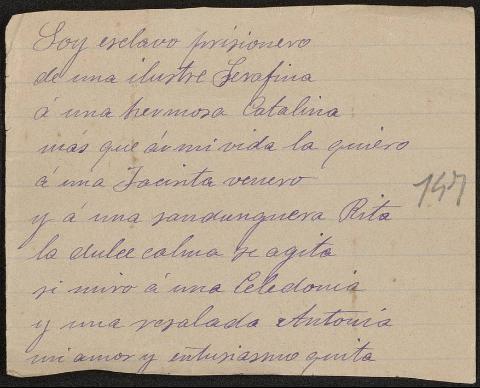 Soy esclavo prisionero
de una ilustre Serafina
á una hermosa Catalina
más que á mi vida la quiero
á una Jacinta venero
147
y á una sandunguera Rita
la dulce calma se agita
si miro á una Celedonia
y una resalada Antonia
mi amor y entusiasmo quita